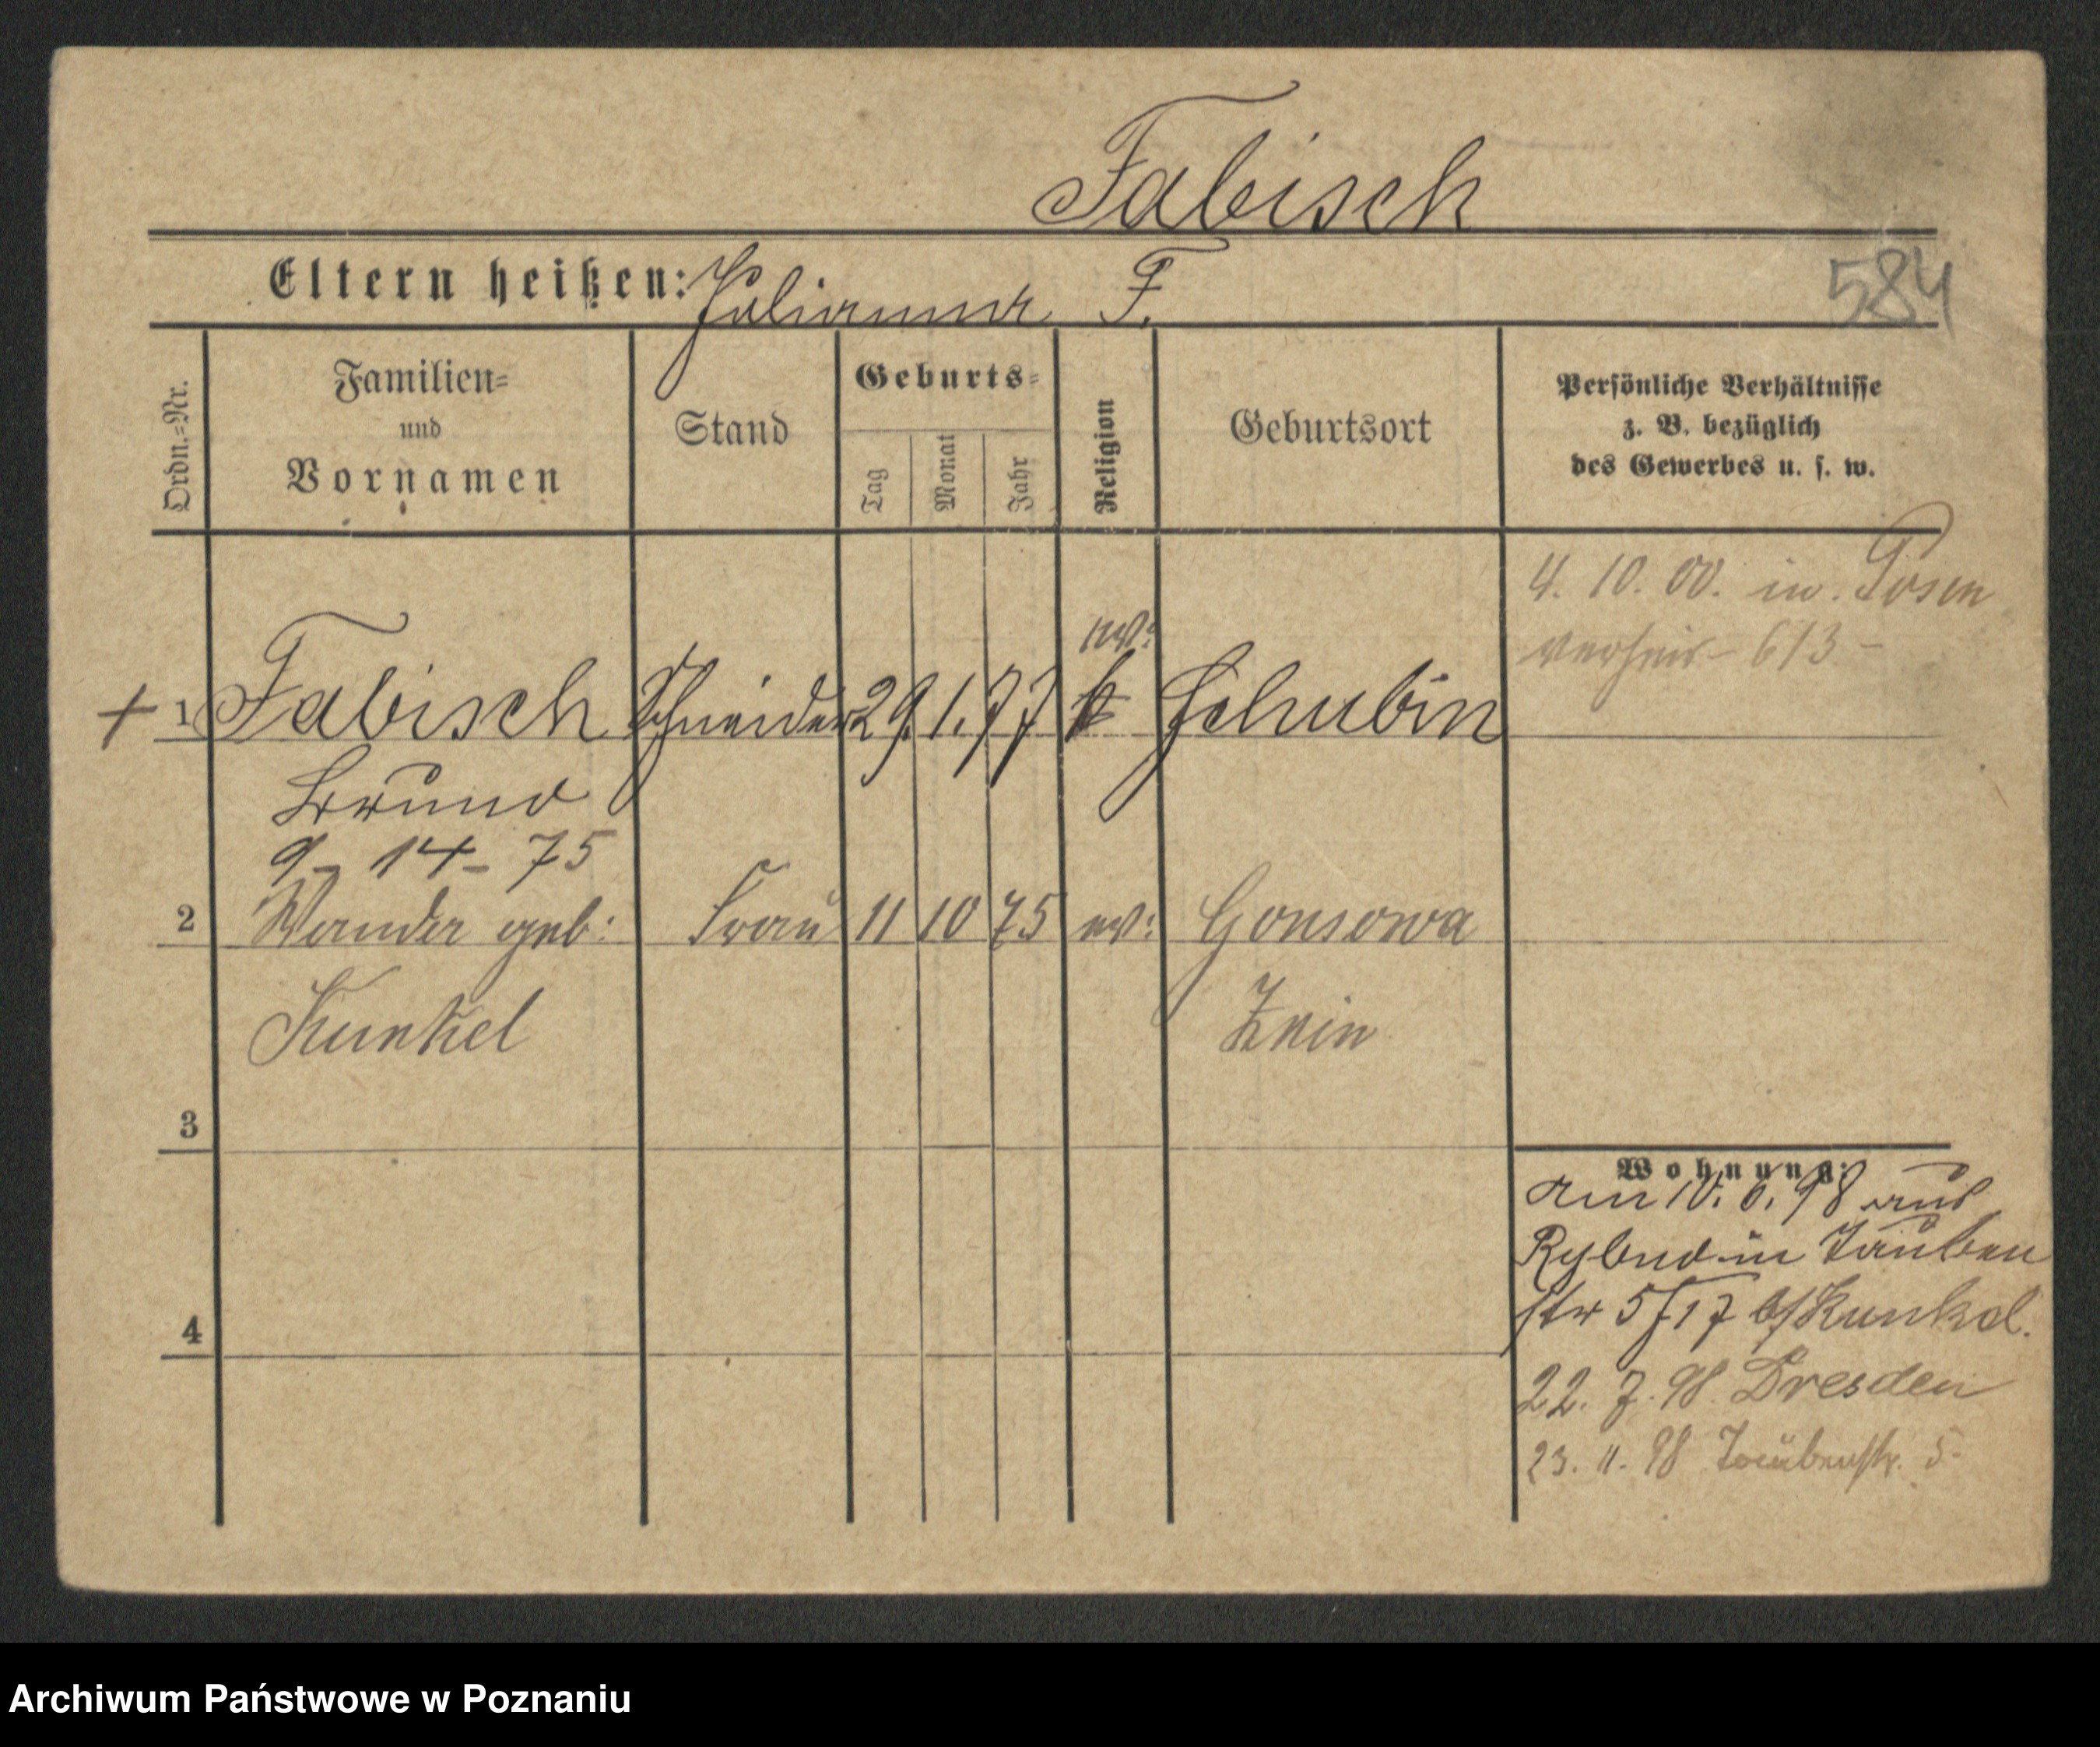 Fabisch
Eltern heißen: Julianna F.
584
Ordn.-Nr.
Familien- und Vornamen
Stand
Geburts-
Tag
Monat
Jahr
Religion
Geburtsort
Persönliche Verhältnisse
z. B. bezüglich
des Gewerbes u. s. w.
4. 10. 00. in Posen
verheir 613
ev:
1 Fabisch Schneider 29. 1. 77 k Schubin
Bruno
9 - 14 - 75
2 Wanda geb: Frau 11 10 75 ev: Gonsowa
Kunkel Znin
3
Wohnung:
am 10. 6. 98 aus
in Tauben
str 5 17 b/Kunkel.
4
22. 7. 98. Dresden
23. 11. 98 Taubenstr. 5
Archiwum Państwowe w Poznaniu